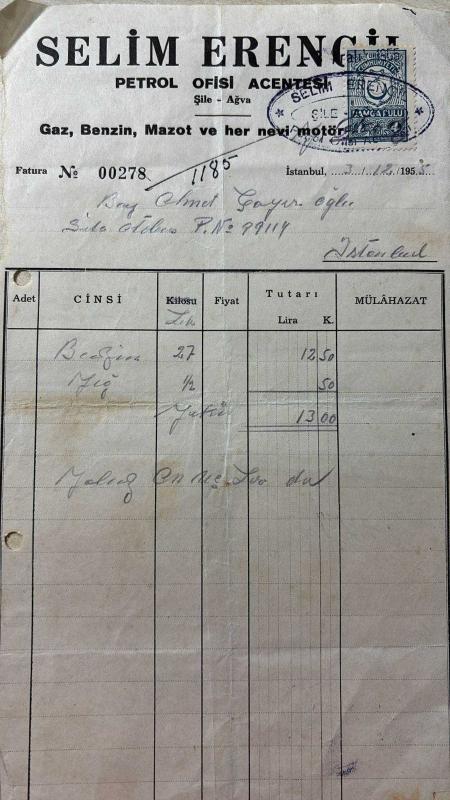 SELİM ERENGİL
PETROL OFİSİ ACENTESİ
Şile - Ağva
Gaz, Benzin, Mazot ve her nevi motör
SELİM EREN
ŞİLE -
DAMGA PULU
Fatura № 00278
1185
İstanbul, 3/12/1955
Bay Ahmet
P. No
İstanbul
Adet CİNSİ Kilosu Fiyat Tutarı MÜLÂHAZAT
Lira K.
Benzin 27 12 50
Yağ ½ 50
13 00
Yalnız On üç Lira dır